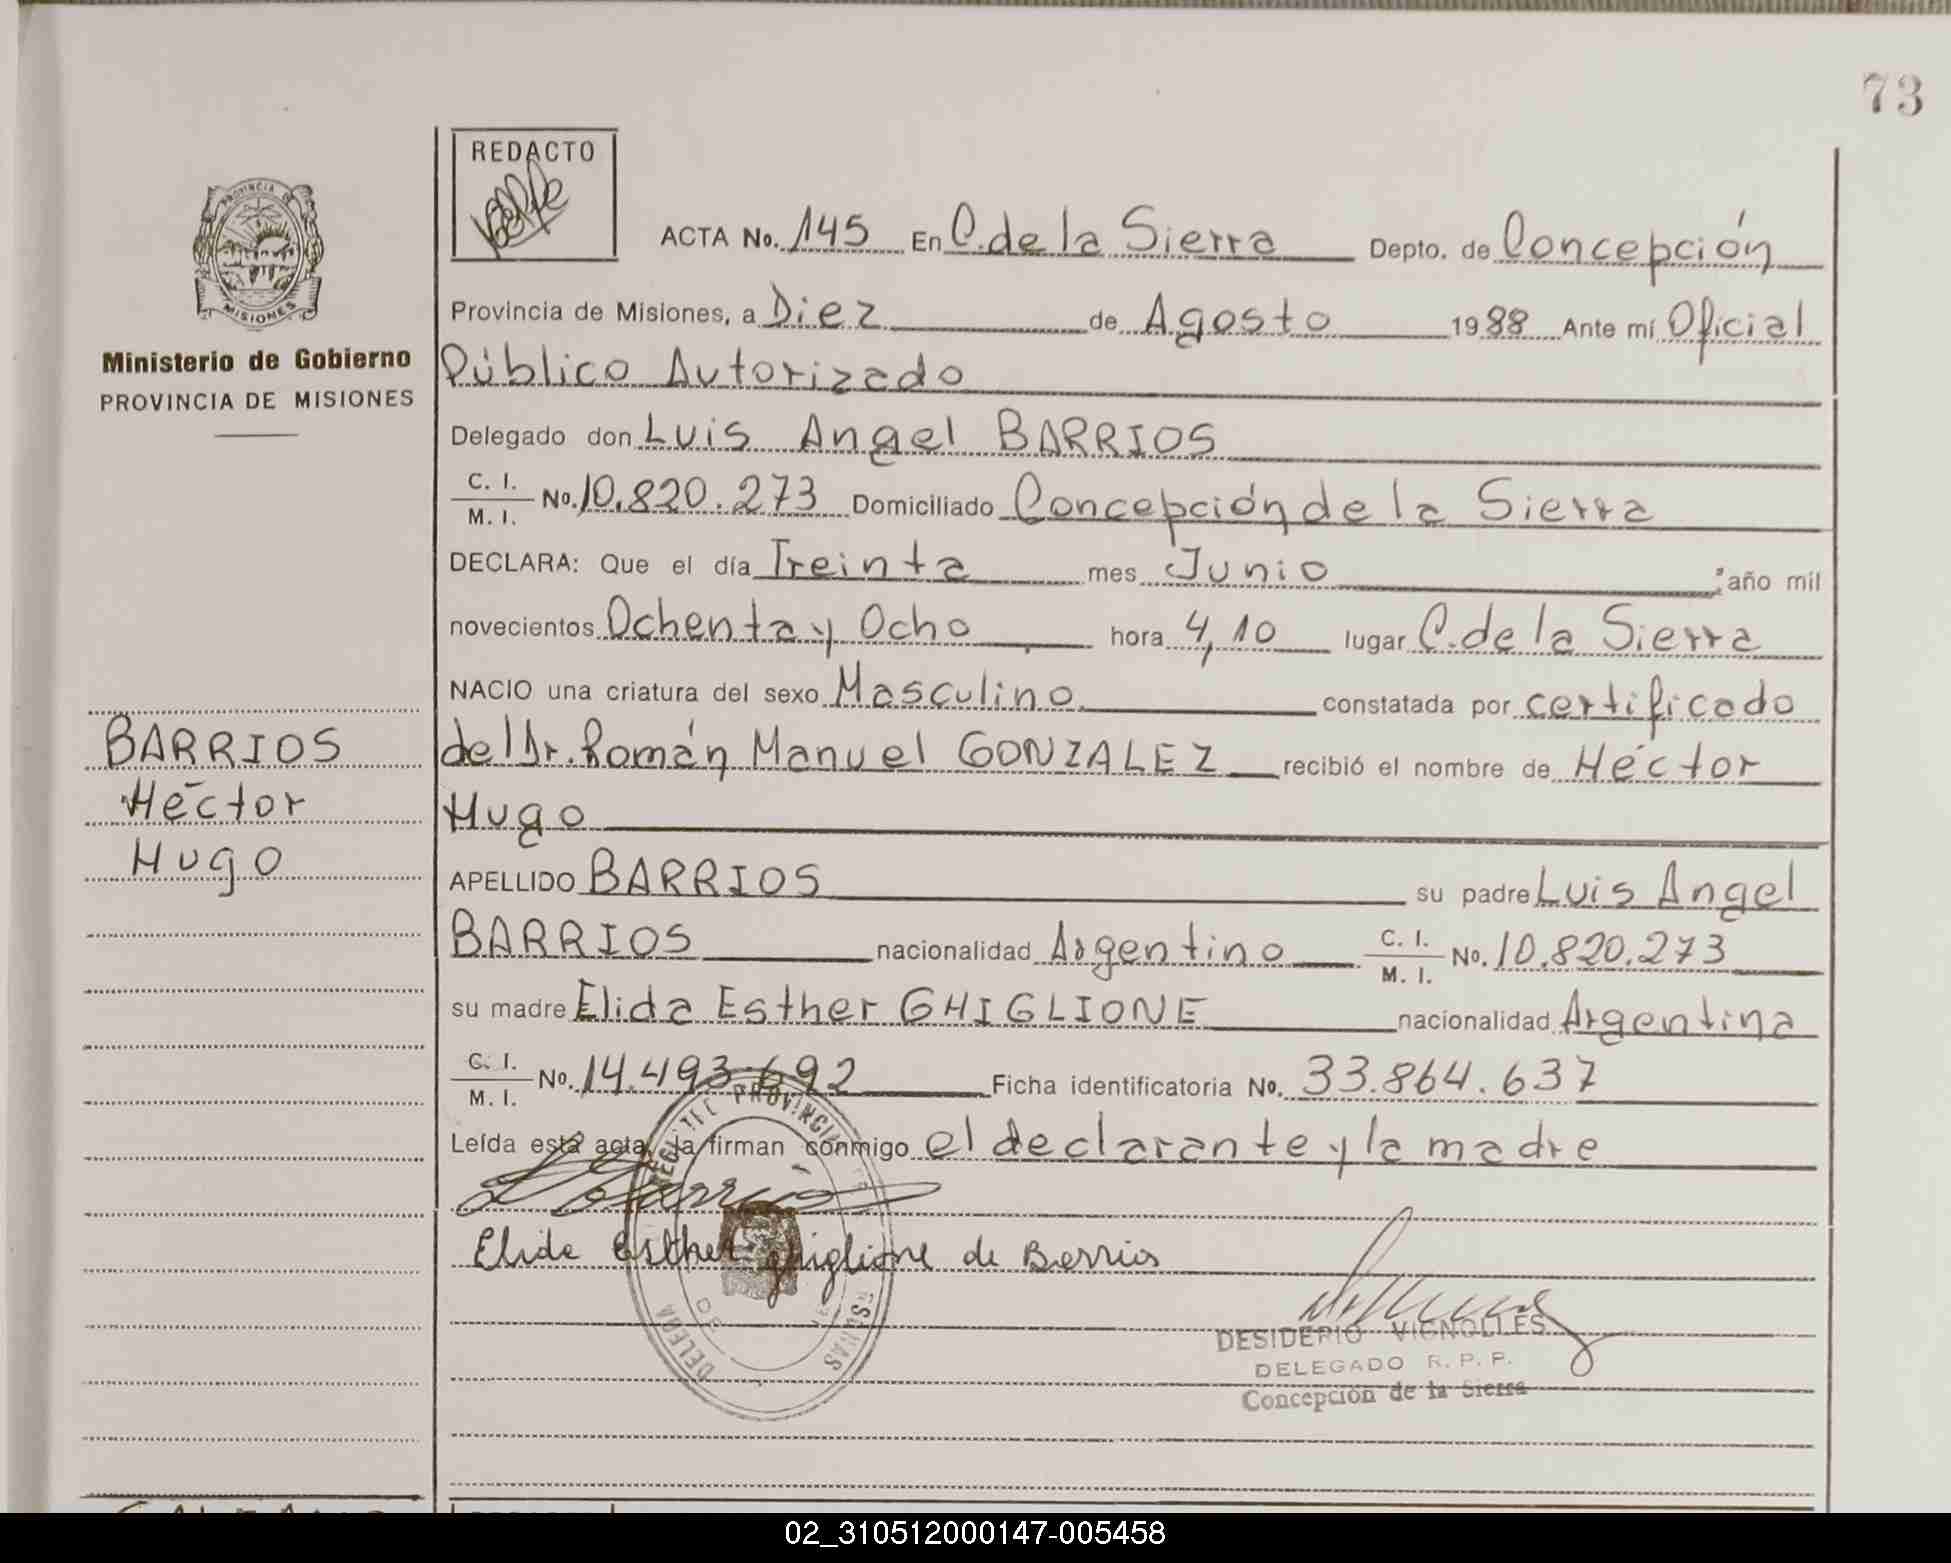 73
REDACTO
PROVINCIA DE
MISIONES
Ministerio de Gobierno
PROVINCIA DE MISIONES
ACTA No. 145 En C. de la Sierra Depto. de Concepción
Provincia de Misiones, a Diez de Agosto 1988 Ante mí Oficial
Público Autorizado
Delegado don Luis Angel BARRIOS
C. I.
M. I. No. 10.820.273 Domiciliado Concepción de la Sierra
DECLARA: Que el día Treinta mes Junio año mil
novecientos Ochenta y Ocho hora 4,10 lugar C. de la Sierra
NACIO una criatura del sexo Masculino constatada por certificado
del Dr. Román Manuel GONZALEZ recibió el nombre de Héctor
Hugo
BARRIOS
Héctor
Hugo
APELLIDO BARRIOS su padre Luis Angel
BARRIOS nacionalidad Argentino C. I. M. I. No. 10.820.273
su madre Elida Esther GHIGLIONE nacionalidad Argentina
C. I.
M. I. No. 14.493.692 Ficha identificatoria No. 33.864.637
Leída esta acta, la firman conmigo el declarante y la madre
Elida Esther Ghiglione de Barrios
DESIDERIO VIGNOLLES
DELEGADO R. P. P.
Concepción de la Sierra
02_310512000147-005458